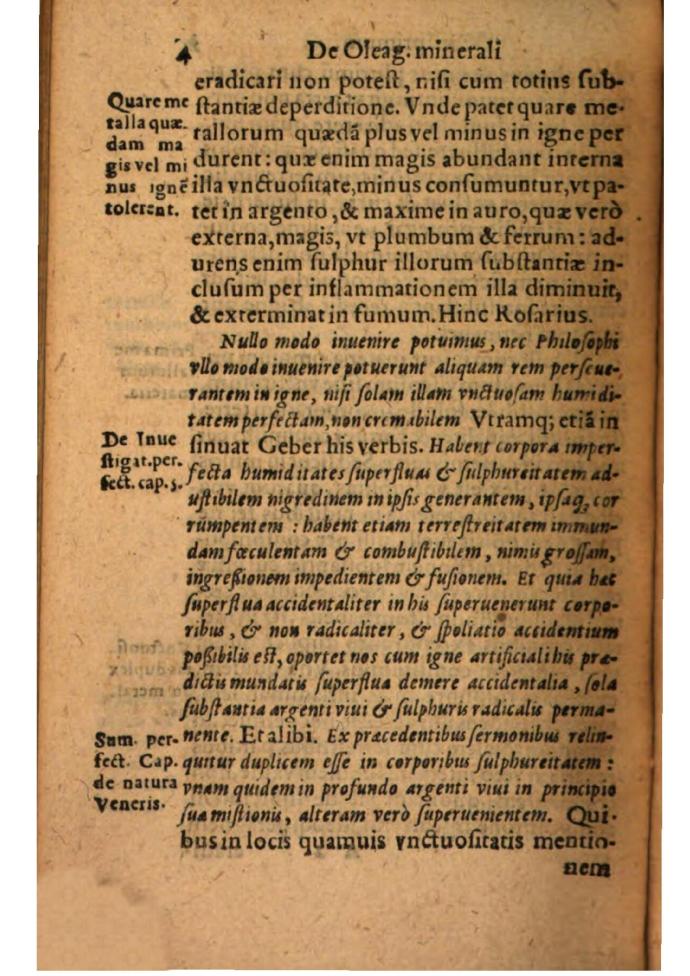 4 De Oleag. minerali
eradicari non poteſt, niſi cum totius ſub-
ſtantiæ deperditione. Vnde patet quare me-
tallorum quædã plus vel minus in igne per
durent: quæ enim magis abundant interna
illa vnctuoſitate, minus conſumuntur, vt pa-
tet in argento, & maxime in auro, quæ verò
externa, magis, vt plumbum & ferrum: ad-
urens enim ſulphur illorum ſubſtantiæ in-
cluſum per inflammationem illa diminuit,
& exterminat in fumum. Hinc Roſarius.
Quare me
talla quæ-
dam ma
gis vel mi
nus ignẽ
tolerent.
Nullo modo inuenire potuimus, nec Philoſophi
vllo modo inuenire potuerunt aliquam rem perſeue-
rantem in igne, niſi ſolam illam vnctuoſam humidi-
tatem perfectam, non cremabilem Vtramq; etiã in
ſinuat Geber his verbis. Habent corpora imper-
fecta humiditates ſuperfluas & ſulphureitatem ad-
uſtibilem nigredinem in ipſis generantem, ipſaq; cor
rũpentem : habent etiam terreſtreitatem immun-
dam fœculentam & combuſtibilem, nimis groſſam,
ingreßionem impedientem & fuſionem. Et quia hæc
ſuperflua accidentaliter in his ſuperuenerunt corpo-
ribus, & non radicaliter, & ſpoliatio accidentium
poßibilis eſt, oportet nos cum igne artificiali his præ-
dictis mundatis ſuperflua demere accidentalia, ſola
ſubſtantia argenti viui & ſulphuris radicalis perma-
nente. Et alibi. Ex præcedentibus ſermonibus relin-
quitur duplicem eſſe in corporibus ſulphureitatem :
vnam quidem in profundo argenti viui in principio
ſua miſtionis, alteram verò ſuperuenientem. Qui-
bus in locis quamuis vnctuoſitatis mentio-
nem
De Inue
ſtigat. per-
fect. cap. 3.
Sum. per-
fect. Cap.
de natura
Veneris.